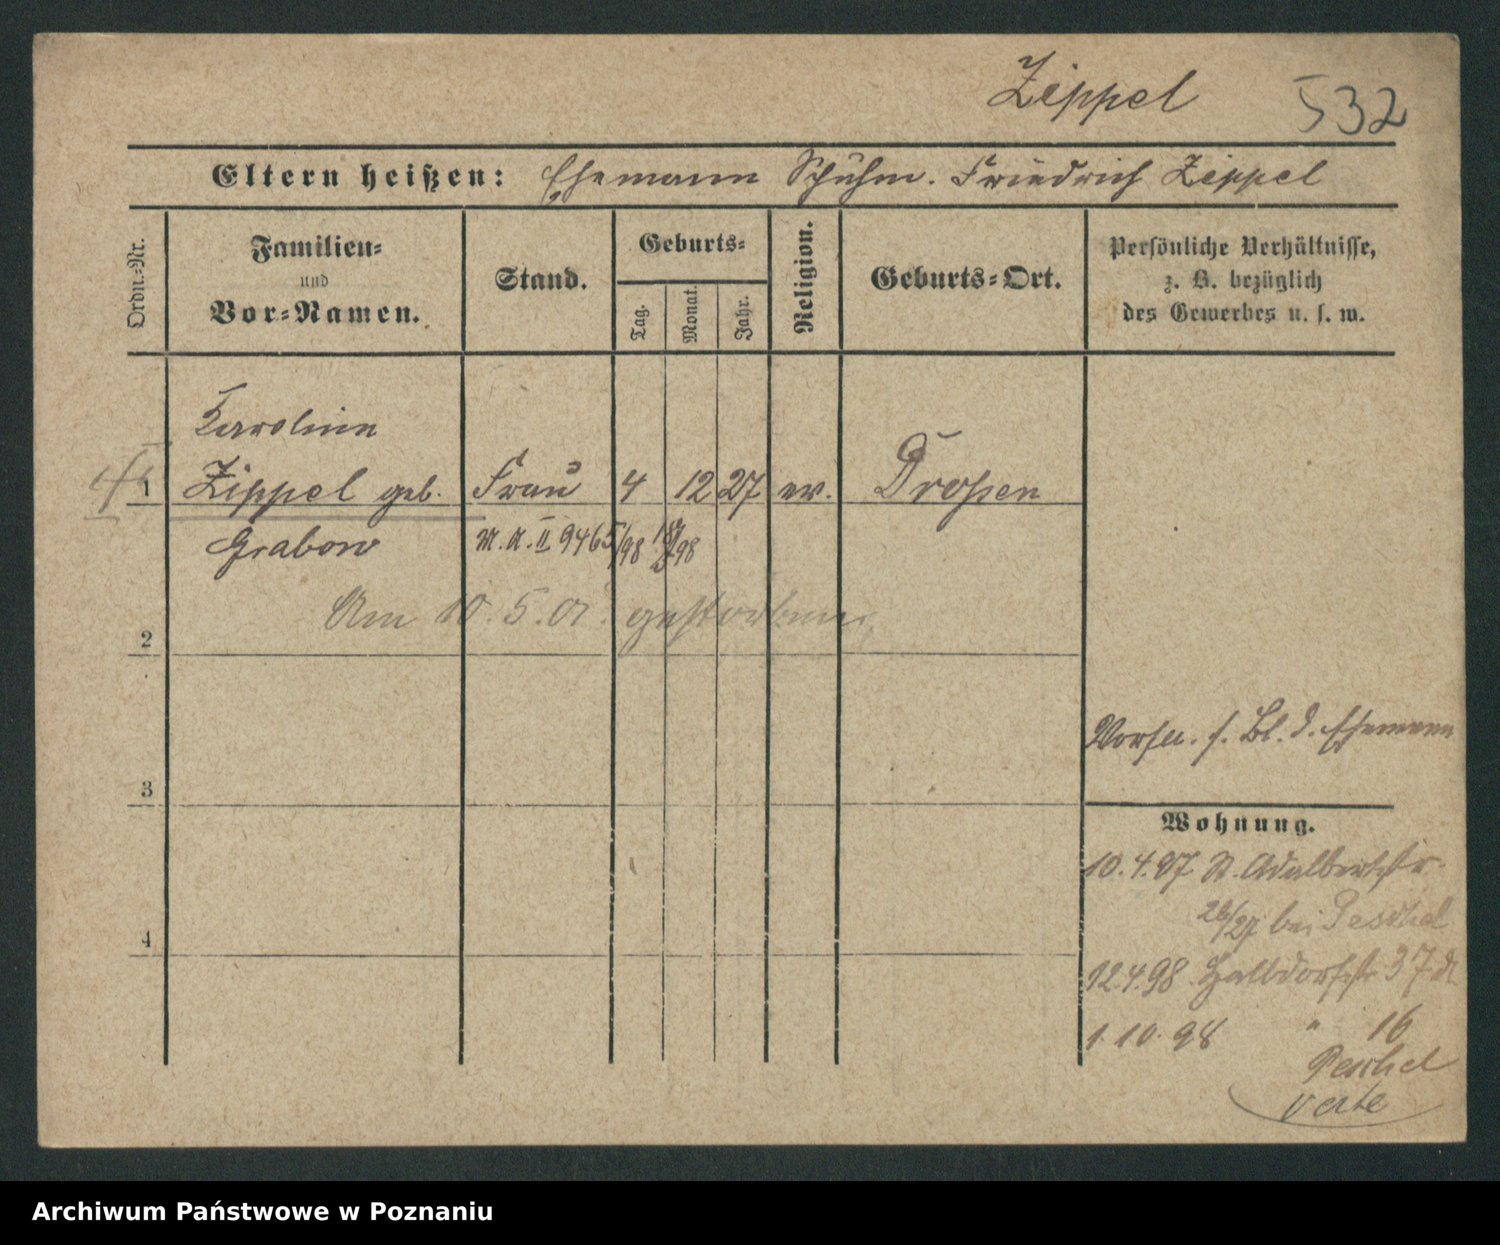 Zippel 532
Eltern heißen: Ehemann Schuhm. Friedrich Zippel
Ordn.-Nr.
Familien-
und
Vor-Namen.
Stand.
Geburts-
Tag.
Monat.
Jahr.
Religion.
Geburts-Ort.
Persönliche Verhältnisse,
z. B. bezüglich
des Gewerbes u. s. w.
Karoline
1 Zippel geb. Frau 4 12 27 ev. Drossen
Grabow M. A. II 9465/98
Am 10.5.01. gestorben
2
3
4
Vorhe. s. Bl. d. Ehemann
Wohnung.
10.4.97 St. Adalbertstr.
26/27 bei Peschel
12.4.98 Halbdorfstr. 37
1.10.98 " 16
Peschel
verte
Archiwum Państwowe w Poznaniu